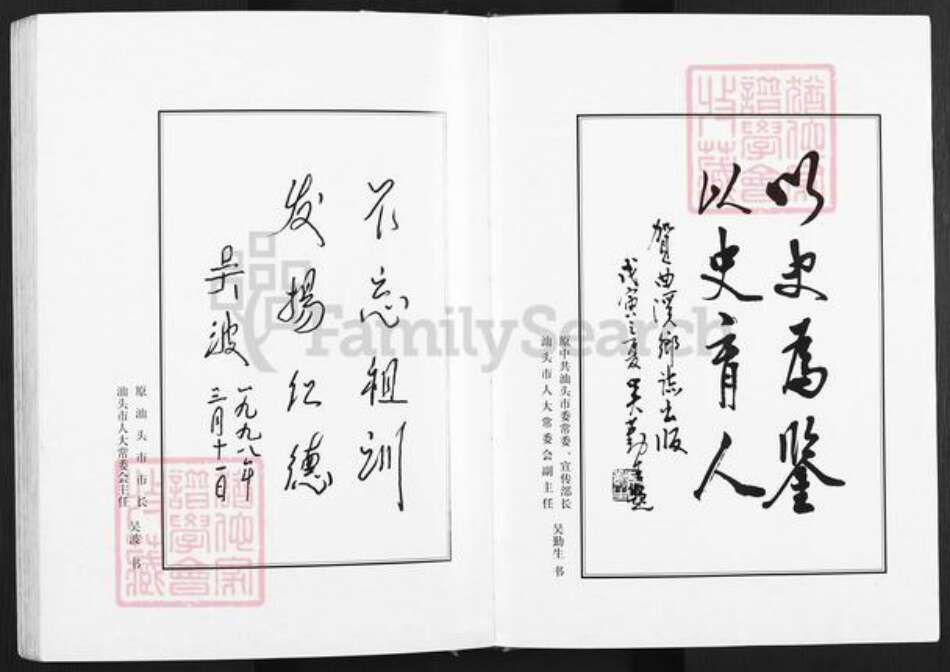 以史为鉴
以史育人
贺曲溪乡志出版
戊寅之夏 吴勤生题
原中共汕头市委常委、宣传部长
汕头市人大常委会副主任 吴勤生 书
不忘祖训
发揚仁德
吴波
一九九八年
三月十一日
原汕头市市长
汕头市人大常委会主任 吴波 书
FamilySearch
譜學會
收藏
譜學會